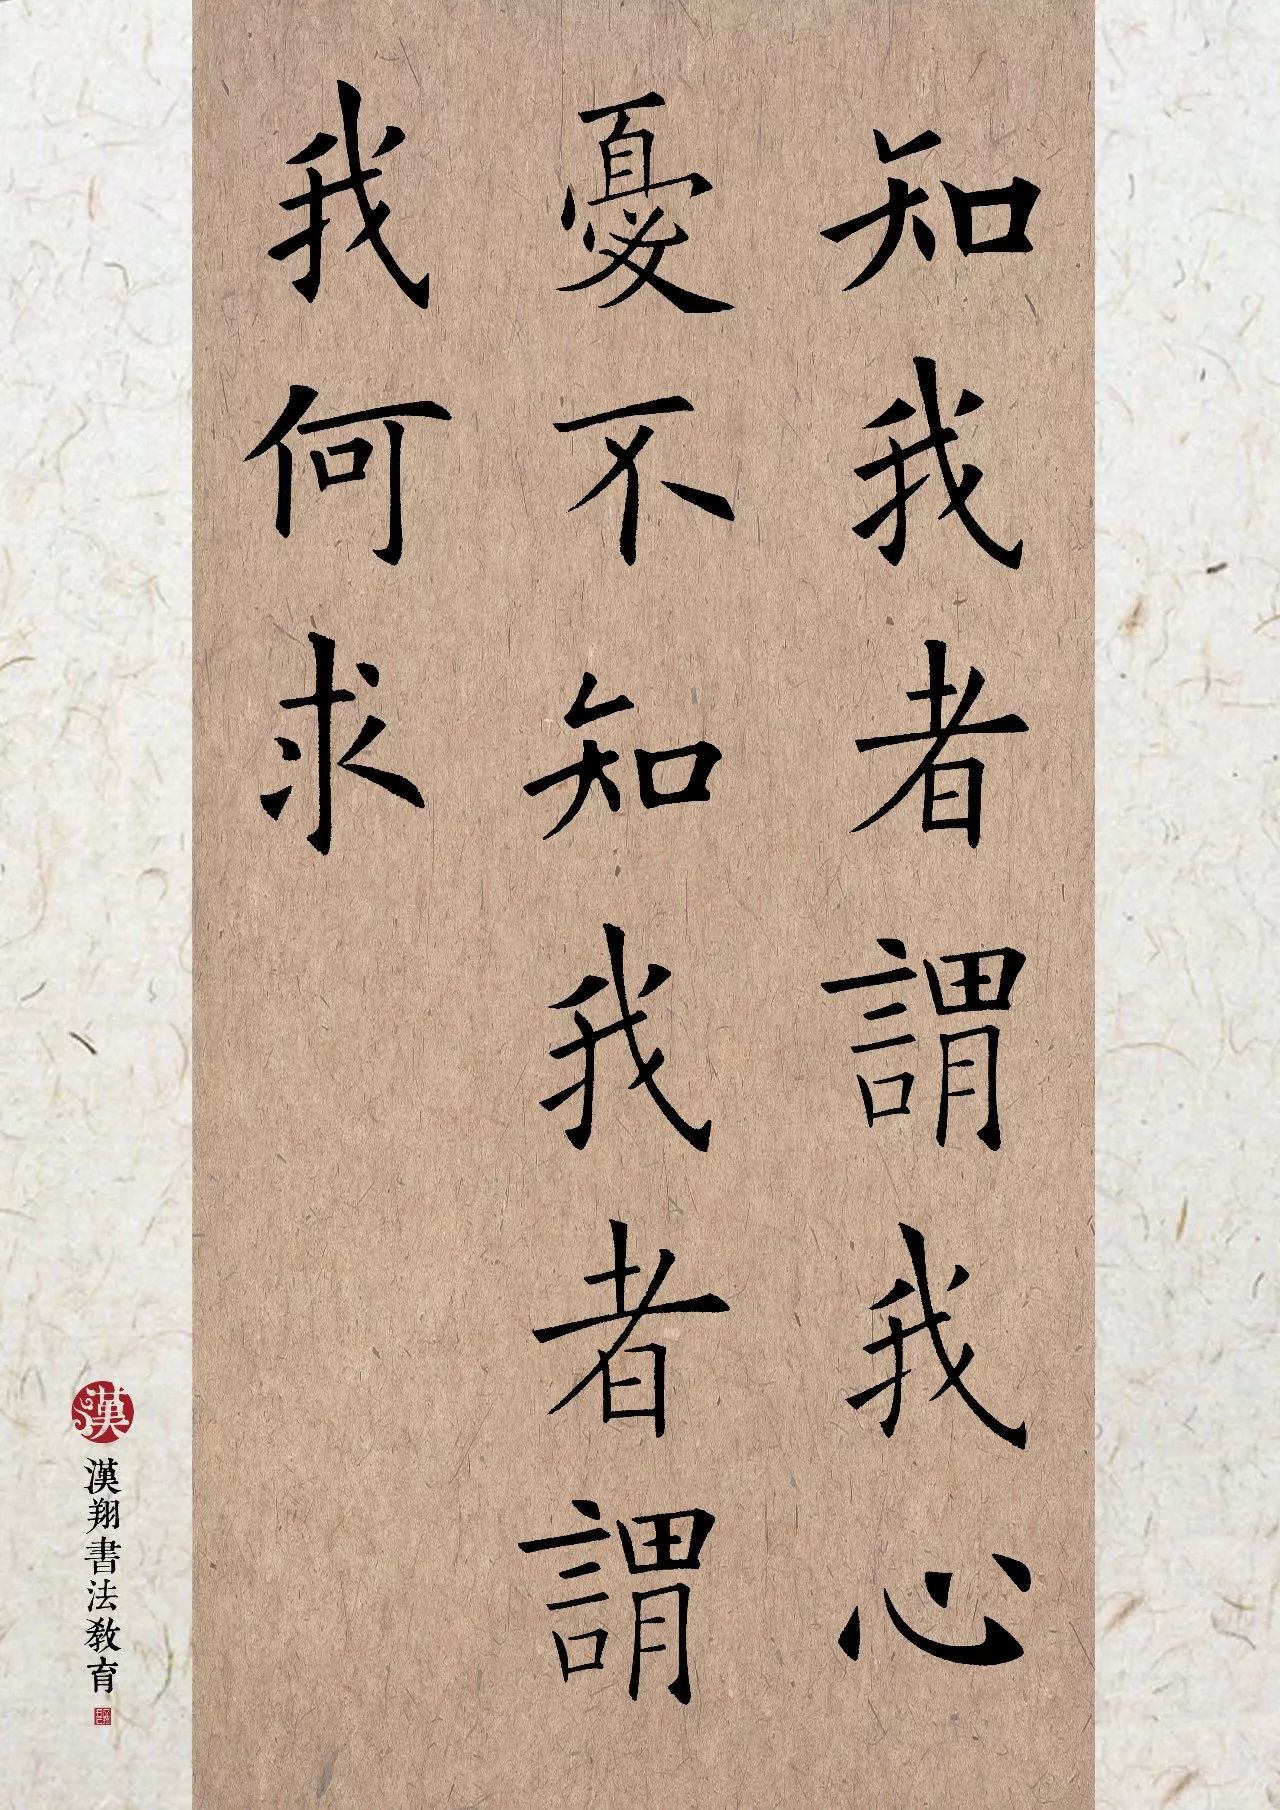 知我者謂我心
憂不知我者謂
我何求
漢
漢翔書法教育